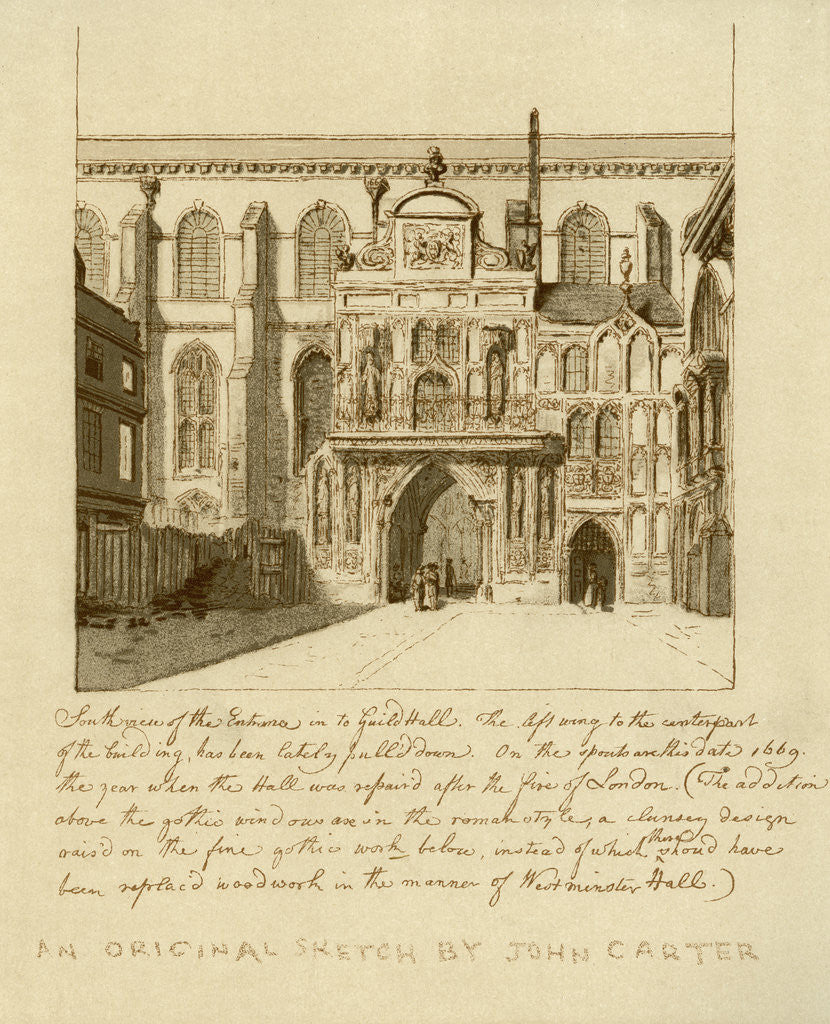 South view of the Entrance in to GuildHall. The left wing to the center part
of the building, has been lately pull'd down. On the spouts are this date 1669.
the year when the Hall was repair'd after the fire of London. (The addition
above the gothic windows are in the roman style, a clumsey design
rais'd on the fine gothic work below, instead of which there shou'd have
been replac'd woodwork in the manner of Westminster Hall.)
AN ORIGINAL SKETCH BY JOHN CARTER